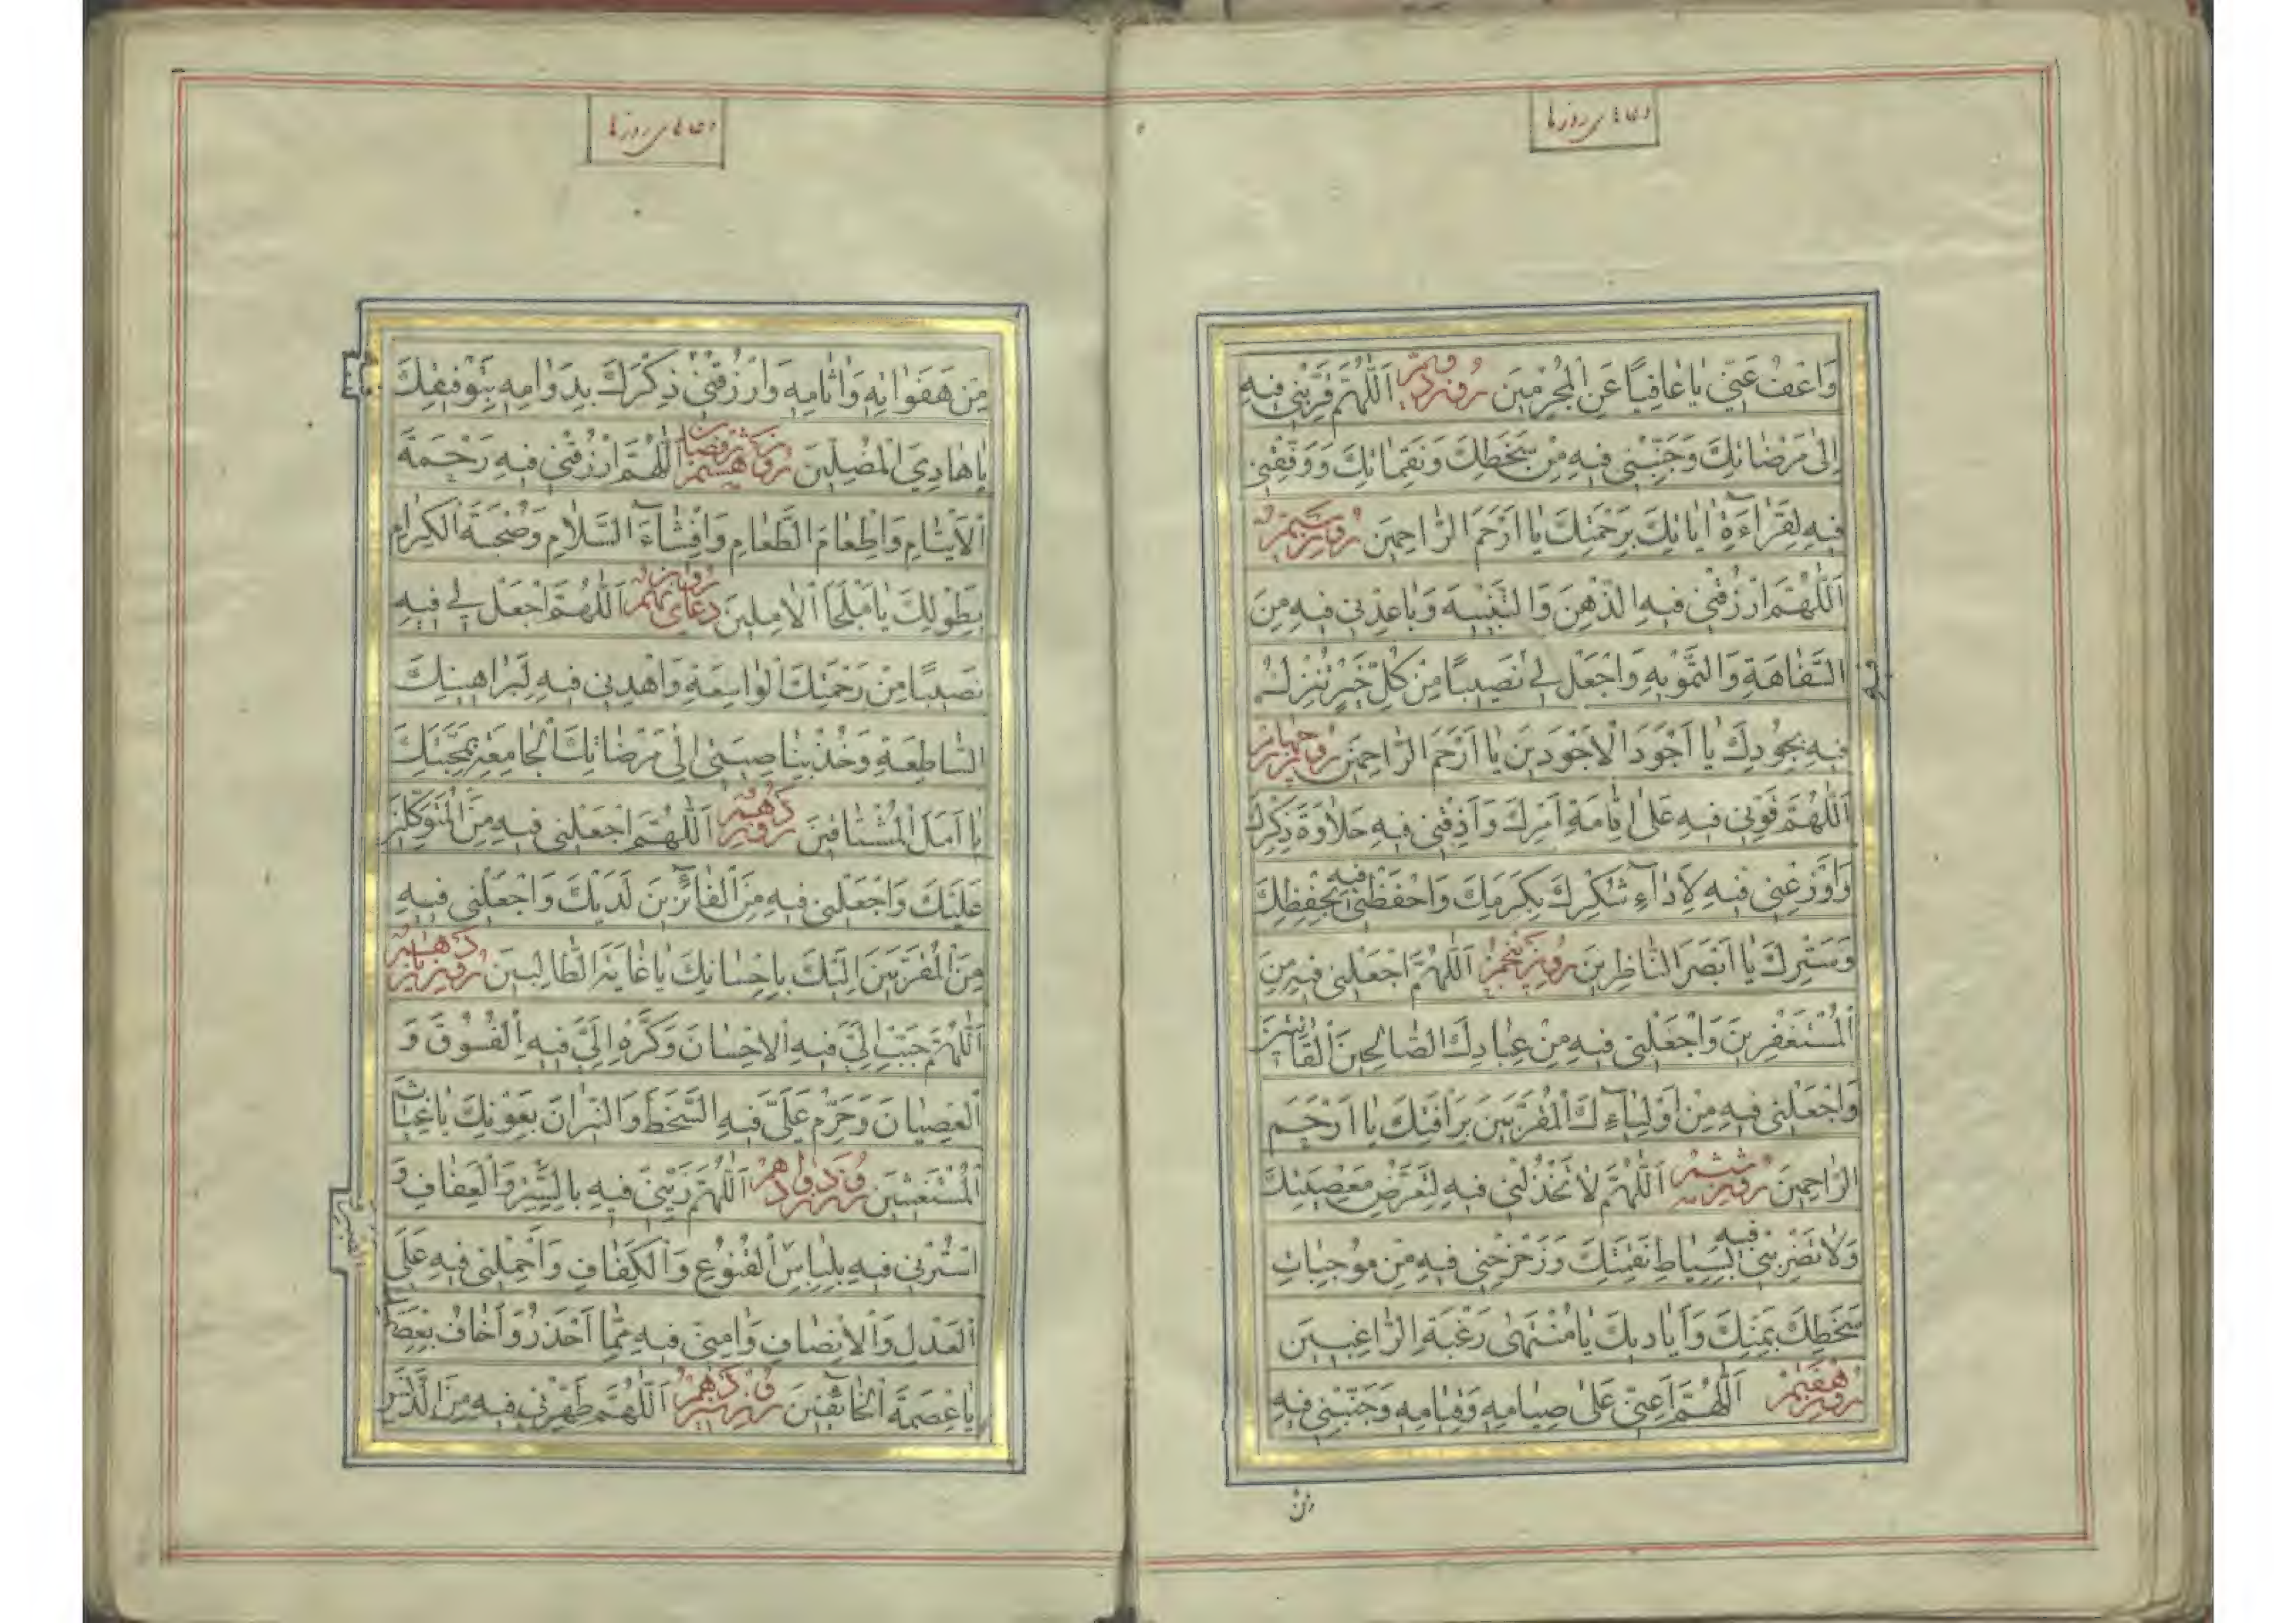 دعاهای روزها
وَاعْفُ عَنّي يا عافِياً عَنِ الْمُجْرِمينَ روز دويم اَللّهُمَّ قَرِّبْني فيهِ
اِلى مَرْضاتِكَ وَجَنِّبْني فيهِ مِنْ سَخَطِكَ وَنَقِماتِكَ وَوَفِّقْني
فيهِ لِقِراءَةِ اياتِكَ بِرَحْمَتِكَ يا اَرْحَمَ الرّاحِمينَ روز سيم
اَللّهُمَّ ارْزُقْني فيهِ الذِّهْنَ وَالتَّنْبيهَ وَباعِدْني فيهِ مِنَ
السَّفاهَةِ وَالتَّمْويهِ وَاجْعَلْ لي نَصيباً مِنْ كُلِّ خَيْرٍ تُنْزِلُ
فيهِ بِجُودِكَ يا اَجْوَدَ الْاَجْوَدينَ يا اَرْحَمَ الرّاحِمينَ روز چهارم
اَللّهُمَّ قَوِّني فيهِ عَلى اِقامَةِ اَمْرِكَ وَاَذِقْني فيهِ حَلاوَةَ ذِكْرِكَ
وَاَوْزِعْني فيهِ لِاَداءِ شُكْرِكَ بِكَرَمِكَ وَاحْفَظْني فيه بِحِفْظِكَ
وَسَتْرِكَ يا اَبْصَرَ النّاظِرينَ روز پنجم اَللّهُمَّ اجْعَلْني فيهِ مِنَ
الْمُسْتَغْفِرينَ وَاجْعَلْني فيهِ مِنْ عِبادِكَ الصّالِحينَ الْقانِتينَ
وَاجْعَلْني فيهِ مِنْ اَوْلِياءِكَ الْمُقَرَّبينَ بِرَافَتِكَ يا اَرْحَمَ
الرّاحِمينَ روز ششم اَللّهُمَّ لا تَخْذُلْني فيهِ لِتَعَرُّضِ مَعْصِيَتِكَ
وَلا تَضْرِبْني فيه بِسِياطِ نَقِمَتِكَ وَزَحْزِحْني فيهِ مِنْ مُوجِباتِ
سَخَطِكَ بِمَنِّكَ وَاَياديكَ يا مُنْتَهى رَغْبَةِ الرّاغِبينَ
روز هفتم اَللّهُمَّ اَعِنّي عَلى صِيامِهِ وَقِيامِهِ وَجَنِّبْني فيهِ
من
دعاهای روزها
مِنْ هَفَواتِهِ وَاثامِهِ وَارْزُقْني ذِكْرَكَ بِدَوامِهِ بِتَوْفيقِكَ
يا هادِيَ الْمُضِلّينَ روز هشتم رمضان اَللّهُمَّ ارْزُقْني فيهِ رَحْمَةَ
الْاَيْتامِ وَاِطْعامَ الطَّعامِ وَاِفْشاءَ السَّلامِ وَصُحْبَةَ الْكِرامِ
بِطَوْلِكَ يا مَلْجَأَ الْامِلينَ دعای روز نهم اَللّهُمَّ اجْعَلْ لي فيهِ
نَصيباً مِنْ رَحْمَتِكَ الْواسِعَةِ وَاهْدِني فيهِ لِبَراهينِكَ
السّاطِعَةِ وَخُذْ بِناصِيَتي اِلى مَرْضاتِكَ الْجامِعَةِ بِمَحَبَّتِكَ
يا اَمَلَ الْمُشْتاقينَ روز دهم اَللّهُمَّ اجْعَلْني فيهِ مِنَ الْمُتَوَكِّلينَ
عَلَيْكَ وَاجْعَلْني فيهِ مِنَ الْفائِزينَ لَدَيْكَ وَاجْعَلْني فيهِ
مِنَ الْمُقَرَّبينَ اِلَيْكَ بِاِحْسانِكَ يا غايَةَ الطّالِبينَ روز يازدهم
اَللّهُمَّ حَبِّبْ اِلَيَّ فيهِ الْاِحْسانَ وَكَرِّهْ اِلَيَّ فيهِ الْفُسُوقَ وَ
الْعِصْيانَ وَحَرِّمْ عَلَيَّ فيهِ السَّخَطَ وَالنّيرانَ بِعَوْنِكَ يا غِياثَ
الْمُسْتَغيثينَ روز دوازدهم اَللّهُمَّ زَيِّنّي فيهِ بِالسِّتْرِ وَالْعَفافِ وَ
اسْتُرْني فيهِ بِلِباسِ الْقُنُوعِ وَالْكَفافِ وَاحْمِلْني فيهِ عَلَى
الْعَدْلِ وَالْاِنْصافِ وَامِنّي فيهِ مِمّا اَحْذَرُ وَاَخافُ بِعِصْمَتِكَ
يا عِصْمَةَ الْخائِفينَ روز سيزدهم اَللّهُمَّ طَهِّرْني فيهِ مِنَ الدَّنَسِ